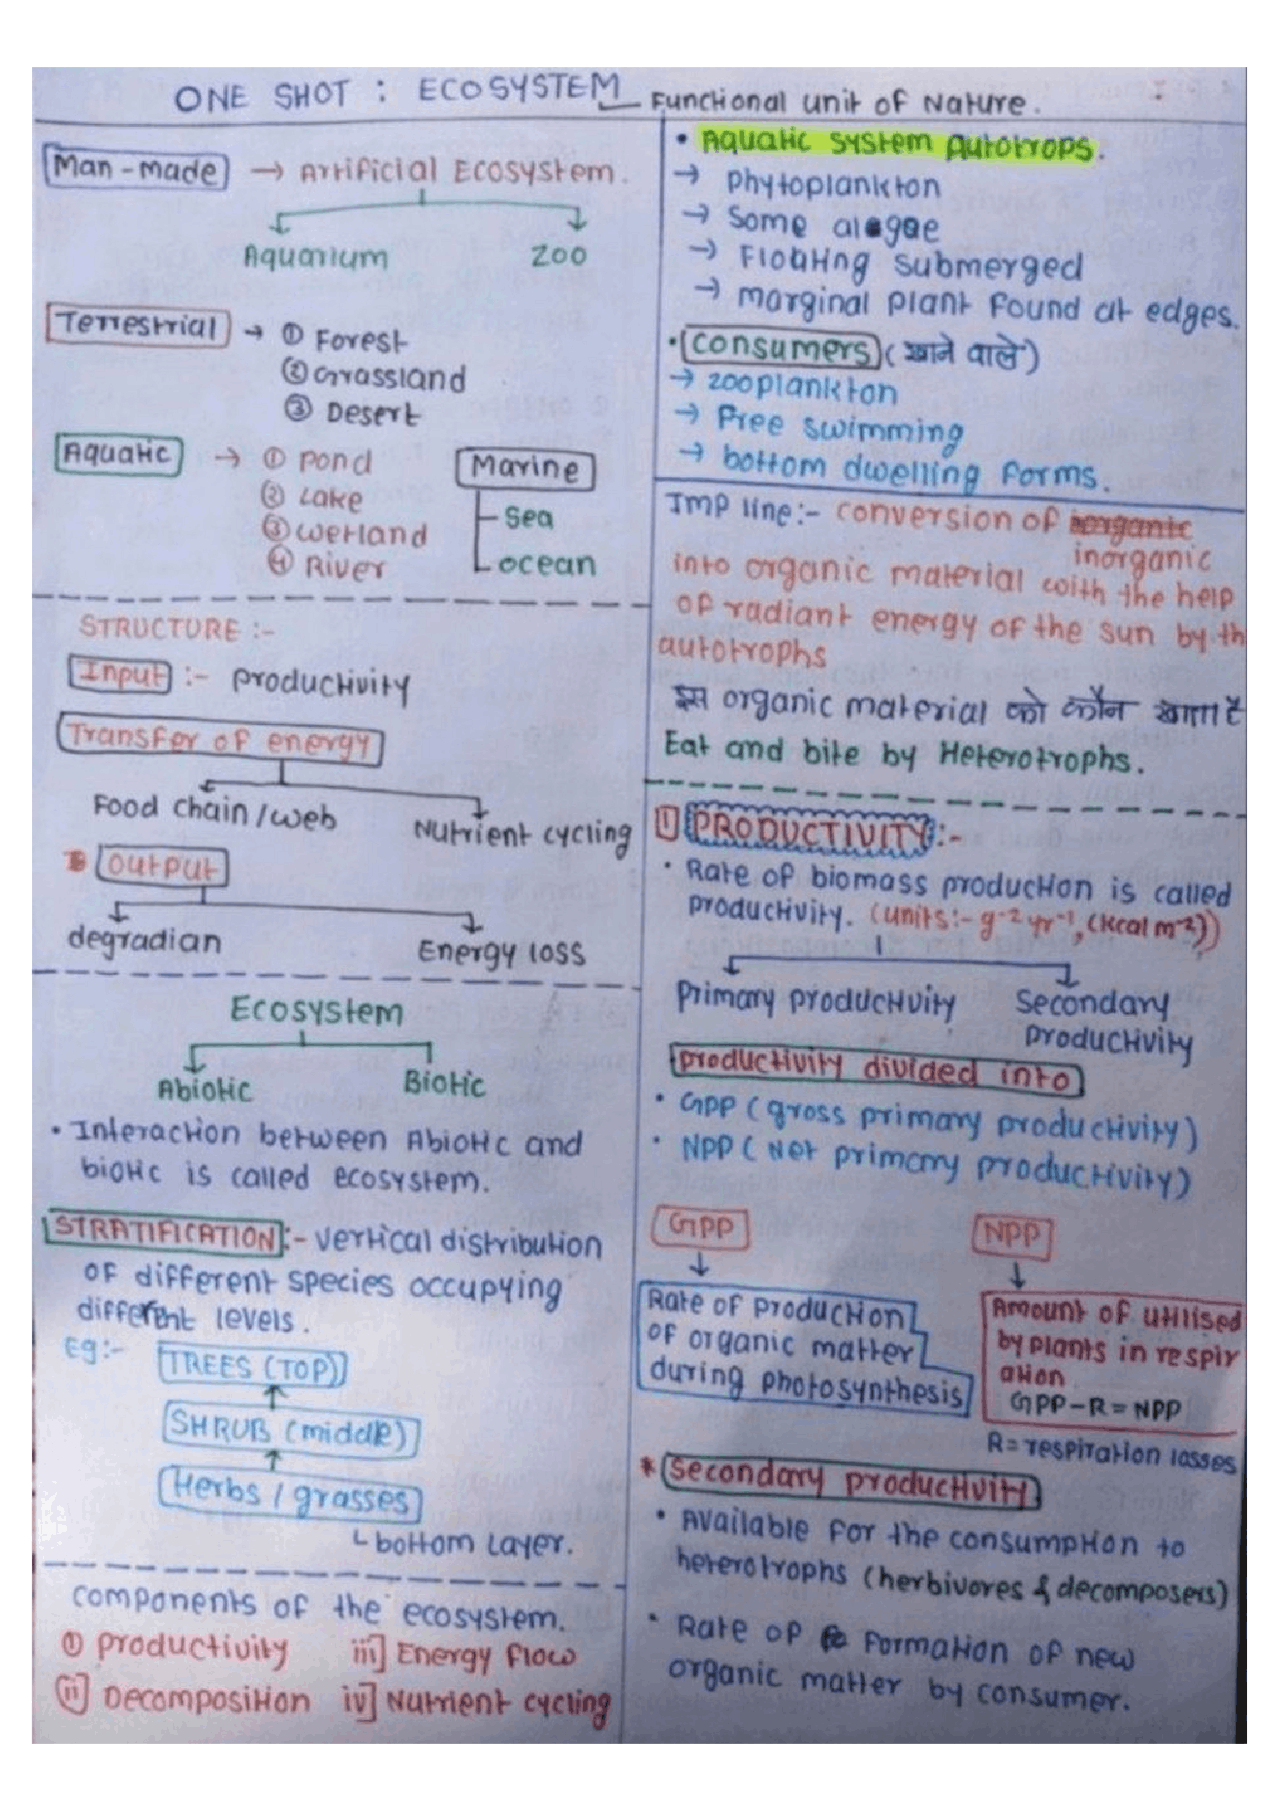 ONE SHOT : ECOSYSTEM Functional unit of Nature.
Man-made → Artificial Ecosystem.
Aquarium Zoo
Terrestrial → ① Forest
② Grassland
③ Desert
Aquatic → ① Pond
② Lake
③ Wetland
④ River
Marine
Sea
ocean
STRUCTURE :-
Input :- productivity
Transfer of energy
Food chain/web Nutrient cycling
Output
degradian Energy loss
Ecosystem
Abiotic Biotic
• Interaction between Abiotic and
biotic is called ecosystem.
STRATIFICATION :- vertical distribution
of different species occupying
different levels.
Eg:- TREES (TOP)
SHRUB (middle)
Herbs / grasses
bottom Layer.
components of the ecosystem.
① productivity iii] Energy flow
ii] Decomposition iv] Nutrient cycling
• Aquatic system Autotrops.
→ Phytoplankton
→ Some alegae
→ Floating submerged
→ marginal plant found at edges.
• Consumers (खाने वाले)
→ zooplankton
→ Free swimming
→ bottom dwelling forms.
IMP line:- conversion of
inorganic
into organic material with the help
of radiant energy of the sun by th
autotrophs
इस organic material को कौन खाता है
Eat and bite by Heterotrophs.
① PRODUCTIVITY :-
• Rate of biomass production is called
productivity. (units:- g⁻² yr⁻¹, (Kcal m⁻²))
Primary productivity Secondary
productivity
productivity divided into
• GPP (gross primary productivity)
• NPP (Net primary productivity)
GPP
Rate of production
of organic matter
during photosynthesis
NPP
Amount of utilised
by plants in respir
ation
GPP – R = NPP
R = respiration losses
* Secondary productivity
• Available for the consumption to
heterotrophs (herbivores & decomposers)
• Rate of formation of new
organic matter by consumer.